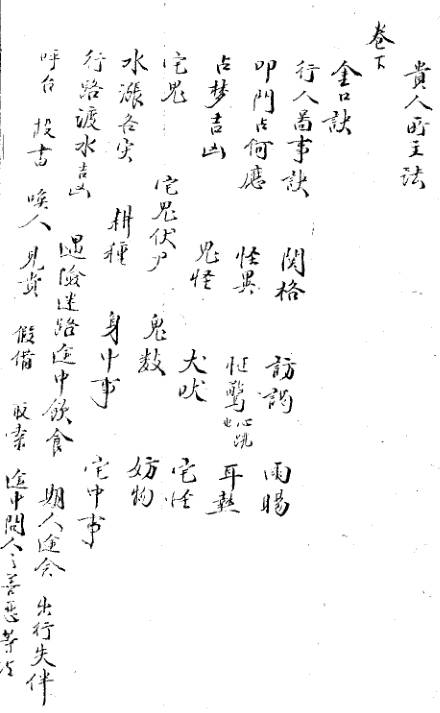 貴人所主法
卷下
金口訣
行人啚事訣 関格 訪謁 雨暘
叩門占何應 怪異 怔驚 也心跳 耳熱
占梦吉凶 鬼怪 犬吠 宅怪
宅鬼 宅鬼伏尸 鬼数 妨物
水漲各实 耕種 身中事 宅中事
行路渡水吉凶 遇險迷路 途中飲食 期人途会 出行失伴
呼召 投書 喚人 見貴 假借 取索 途中問人之善惡等法